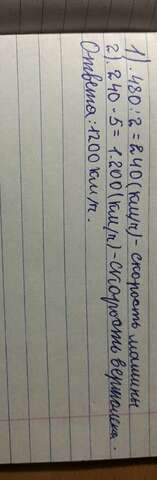 1). 480 : 2 = 240 (км/ч) - скорость машины
2). 240 · 5 = 1.200 (км/ч) - скорость вертолета.
Ответа: 1200 км/ч.